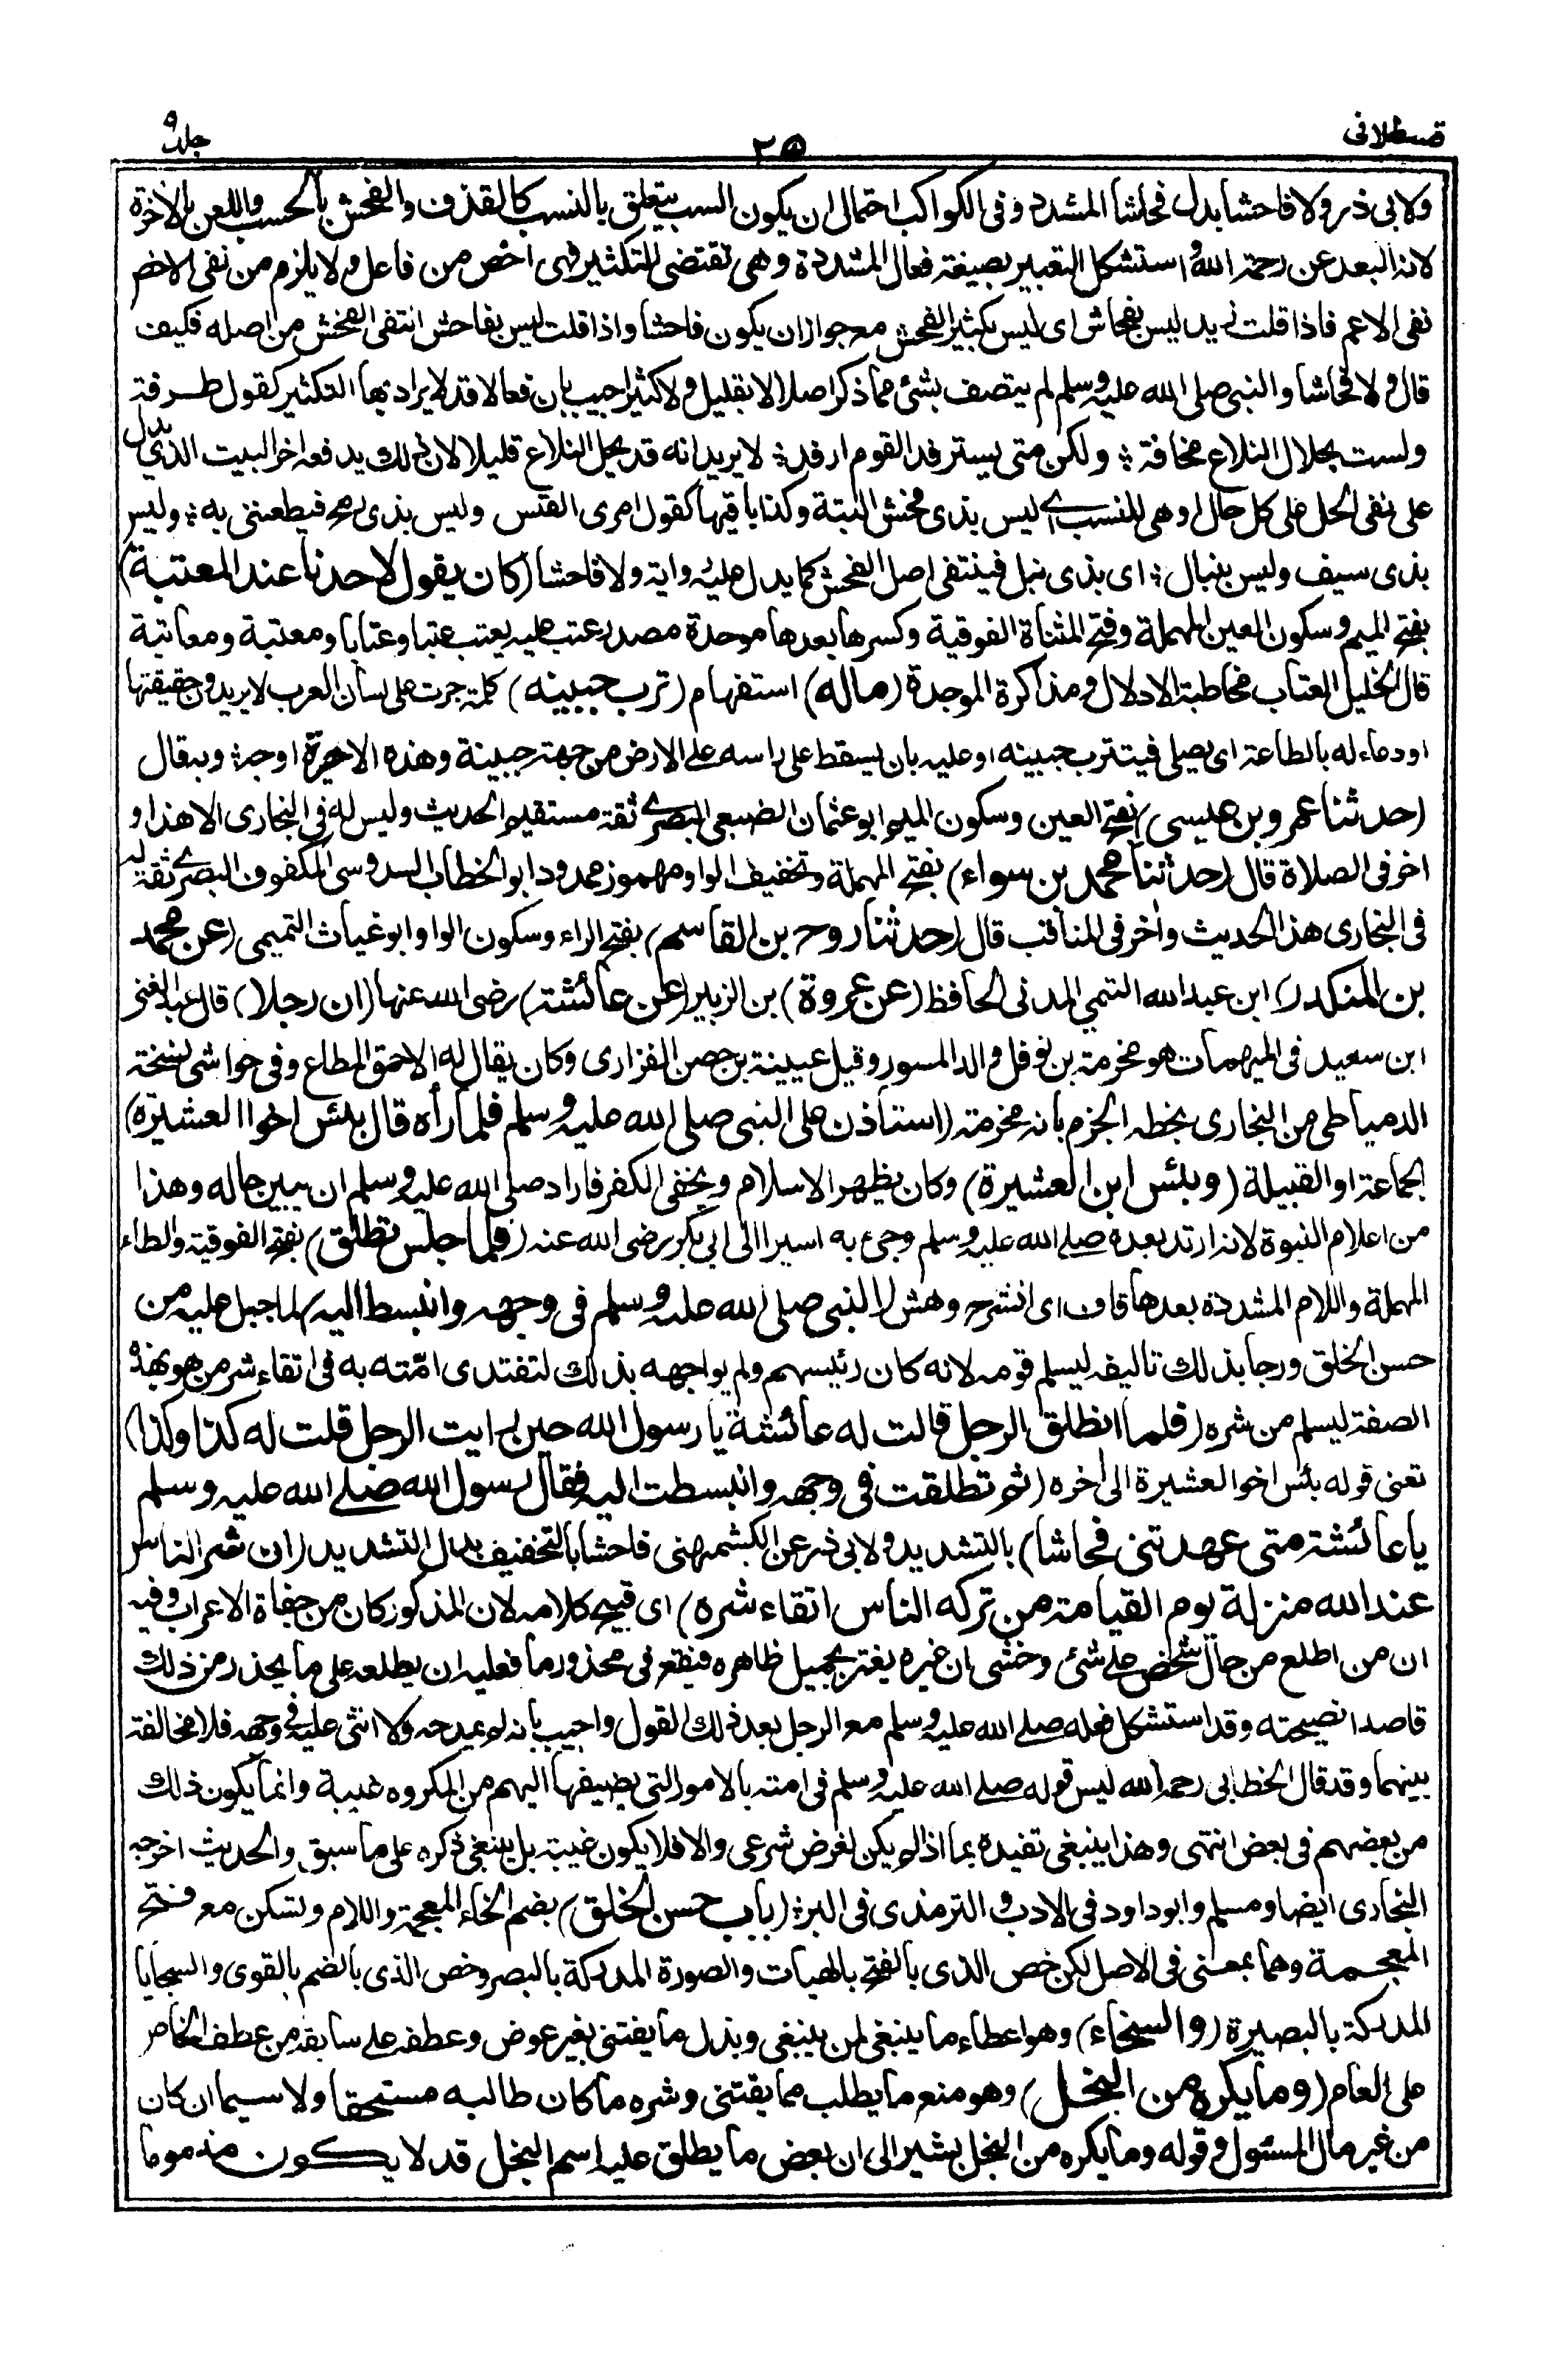 قسطلانى
٣٥
جلد ٩
ولابى ذر ولا فاحشا بدل فحاشا المشدد وفى الكواكب احتمال ان يكون السب يتعلق بالنسب كالقذف والفحش بالحسب واللعن بالآخرة
لانه البعد عن رحمة الله واستشكل التعبير بصيغة فعال المشددة وهى تقتضى التكثير فهى اخص من فاعل ولا يلزم من نفى الاخص
نفى الاعم فاذا قلت زيد ليس بفحاش اى ليس بكثير الفحش مع جواز ان يكون فاحشا واذا قلت ليس بفاحش انتفى الفحش من اصله فكيف
قال ولا فحاشا والنبى صلى الله عليه وسلم لم يتصف بشئ مما ذكر اصلا لا بقليل ولا كثير اجيب بان فعالا قد لا يراد بها التكثير كقول طرفة
ولست بحلال التلاع مخافة ؛ ولكن متى يسترفد القوم ارفد ؛ لا يريد انه قد يحل التلاع قليلا لان ذلك يدفعه اخر البيت الذى يدل
على نفى الحل على كل حال او هى للنسب اى ليس بذى فحش البتة وكذا باقيها كقول امرى القيس وليس بذى رمح فيطعننى به ؛ وليس
بذى سيف وليس بنبال ؛ اى بذى نبل فينتفى اصل الفحش كما يدل عليه رواية ولا فاحشا (كان يقول لاحدنا عند المعتبة)
بفتح الميم وسكون العين المهملة وفتح المثناة الفوقية وكسرها بعدها موحدة مصدر عتب عليه يعتب عتبا وعتابا ومعتبة ومعاتبة
قال الخليل العتاب مخاطبة الادلال ومذاكرة الموجدة (ماله) استفهام (ترب جبينه) كلمة جرت على لسان العرب لا يريدون حقيقتها
او دعاء له بالطاعة اى يصلى فيتترب جبينه او عليه بان يسقط على راسه على الارض من جهة جبينة وهذه الاخيرة اوجه وبه قال
(حدثنا عمرو بن عيسى) بفتح العين وسكون الميم ابو عثمان الضبعى البصرى ثقة مستقيم الحديث وليس له فى البخارى الا هذا و
اخر فى الصلاة قال (حدثنا محمد بن سواء) بفتح المهملة وتخفيف الواو مهموز ممدود ابو الخطاب السدوسى المكفوف البصرى ثقة له
فى البخارى هذا الحديث وآخر فى المناقب قال (حدثنا روح بن القاسم) بفتح الراء وسكون الواو ابو غياث التميمى (عن محمد
بن المنكدر) ابن عبد الله التيمى المدنى الحافظ (عن عروة) بن الزبير (عن عائشة) رضى الله عنها (ان رجلا) قال عبد الغنى
ابن سعيد فى المبهمات هو مخرمة بن نوفل والد المسور وقيل عيينة بن حصن الفزارى وكان يقال له الاحمق المطاع وفى حواشى نسخة
الدمياطى من البخارى بخطه الجزم بانه مخرمة (استأذن على النبى صلى الله عليه وسلم فلما رأه قال بئس اخوا العشيرة)
الجماعة او القبيلة (وبئس ابن العشيرة) وكان يظهر الاسلام ويخفى الكفر فاراد صلى الله عليه وسلم ان يبين حاله وهذا
من اعلام النبوة لانه ارتد بعده صلى الله عليه وسلم وجئ به اسيرا الى ابى بكر رضى الله عنه (فلما جلس تطلق) بفتح الفوقية والطاء
المهملة واللام المشددة بعدها قاف اى انشرح وهش (النبى صلى الله عليه وسلم فى وجهه وانبسط اليه) لما جبل عليه من
حسن الخلق ورجا بذلك تاليفه ليسلم قومه لانه كان رئيسهم ولم يواجهه بذلك لتقتدى امّته به فى اتقاء شر من هو بهذه
الصفة ليسلم من شره (فلما انطلق الرجل قالت له عائشة يا رسول الله حين رايت الرجل قلت له كذا وكذا)
تعنى قوله بئس اخوا العشيرة الى اخره (ثم تطلقت فى وجهه وانبسطت اليه فقال رسول الله صلى الله عليه وسلم
يا عائشة متى عهدتنى فحاشا) بالتشديد ولابى ذر عن الكشميهنى فاحشا بالتخفيف بدل التشديد (ان شر الناس
عند الله منزلة يوم القيامة من تركه الناس اتقاء شره) اى قبيح كلامه لان المذكور كان من جفاة الاعراب وفيه
ان من اطلع من حال شخص على شئ وخشى ان غيره يغتر بجميل ظاهره فيقع فى محذور ما فعليه ان يطلعه على ما يحذر من ذلك
قاصدا نصيحته وقد استشكل فعله صلى الله عليه وسلم مع الرجل بعد ذلك القول واجيب بانه لم يمدحه ولا اثنى عليه فى وجهه فلا مخالفة
بينهما وقد قال الخطابى رحمه الله ليس قوله صلى الله عليه وسلم فى امته بالامور التى يضيفها اليهم من المكروه غيبة وانما يكون ذلك
من بعضهم فى بعض انتهى وهذا ينبغى تقيده بما اذا لم يكن لغرض شرعى والا فلا يكون غيبة بل ينبغى ذكره على ما سبق والحديث اخرجه
البخارى ايضا ومسلم وابو داود فى الادب والترمذى فى البر ؛ (باب حسن الخلق) بضم الخاء المعجمة واللام وتسكن مع فتح
المعجمة وهما بمعنى فى الاصل لكن خص الذى بالفتح بالهيات والصورة المدركة بالبصر وخص الذى بالضم بالقوى والسجايا
المدركة بالبصيرة (والسخاء) وهو اعطاء ما ينبغى لمن ينبغى وبذل ما يقتنى بغير عوض وعطفه على سابقه من عطف الخاص
على العام (وما يكره من البخل) وهو منع ما يطلب مما يقتنى وشره ما كان طالبه مستحقا ولا سيما ان كان
من غير مال المسئول وقوله وما يكره من البخل يشير الى ان بعض ما يطلق عليه اسم البخل قد لا يكون مذموما